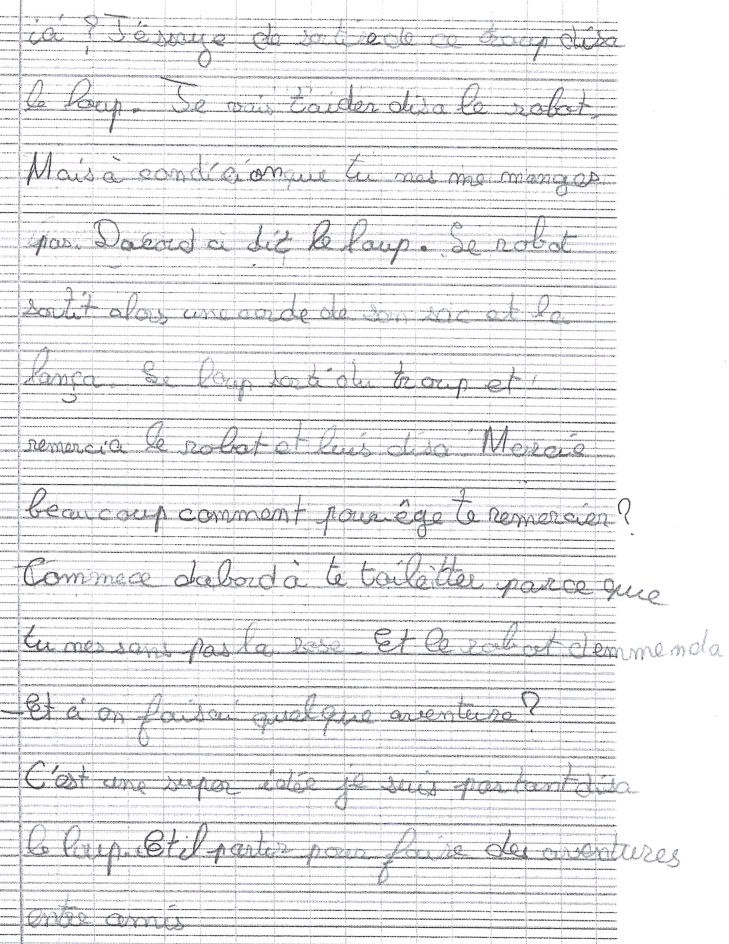 ici ? J'éssaye de sortirede ce troup disa
le loup. Je vais t'aider disa le robot.
Mais à condicionque tu nes me manges
pas. Dacord a dit le loup. Le robot
sortit alors une corde de son sac et la
lança. Le loup sorti du troup et
remercia le robot et luis disa Merciè
beaucoup comment pourêge te remercier?
Commece dabord à te toilètter parce que
tu nes sans pas la rose. Et le robot demmenda
- Et ci on faisai quelque aventure?
C'est une super idée je suis partant disa
le loup. Etil partir pour faire des aventures
entre amis